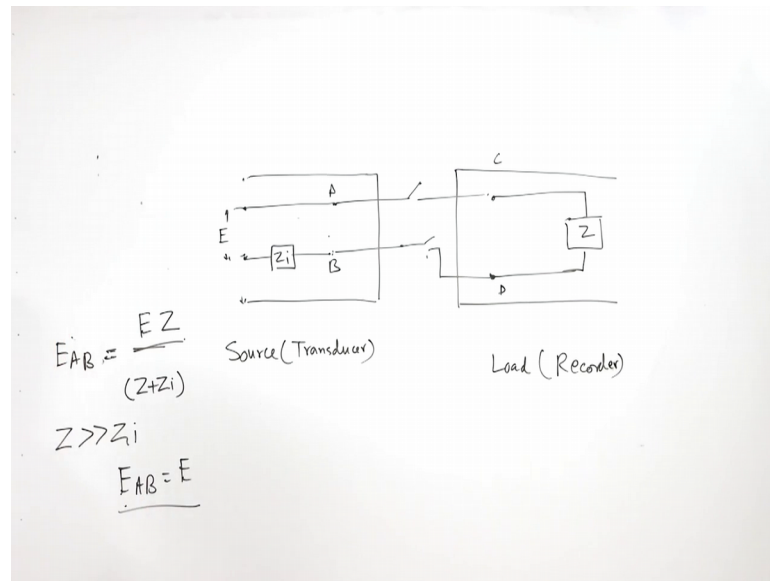 C
A
E
Z
Zi
B
D
EAB = EZ
(Z+Zi)
Source (Transducer)
Load (Recorder)
Z>>Zi
EAB = E